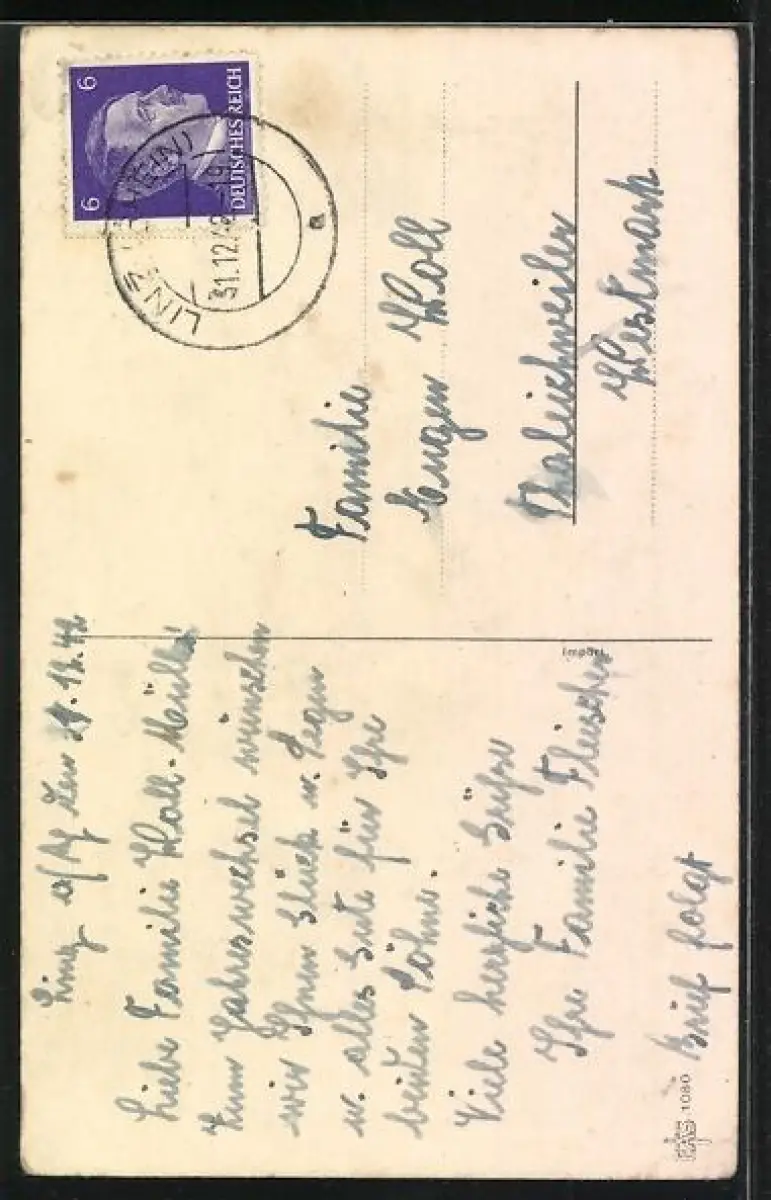 Linz a/Rh den 29.12.42
Liebe Familie Woll-Müller!
Zum Jahreswechsel wünschen
wir Ihnen Glück u. Segen
u. alles Gute für Ihre
beiden Söhne.
Viele herzliche Grüße
Ihre Familie Fleischer
Brief folgt
EAS 1080
Import
6 6
DEUTSCHES REICH
LINZ (RHEIN)
31.12.42-19
a
Familie
Eugen Woll
Thaleischweiler
Westmark